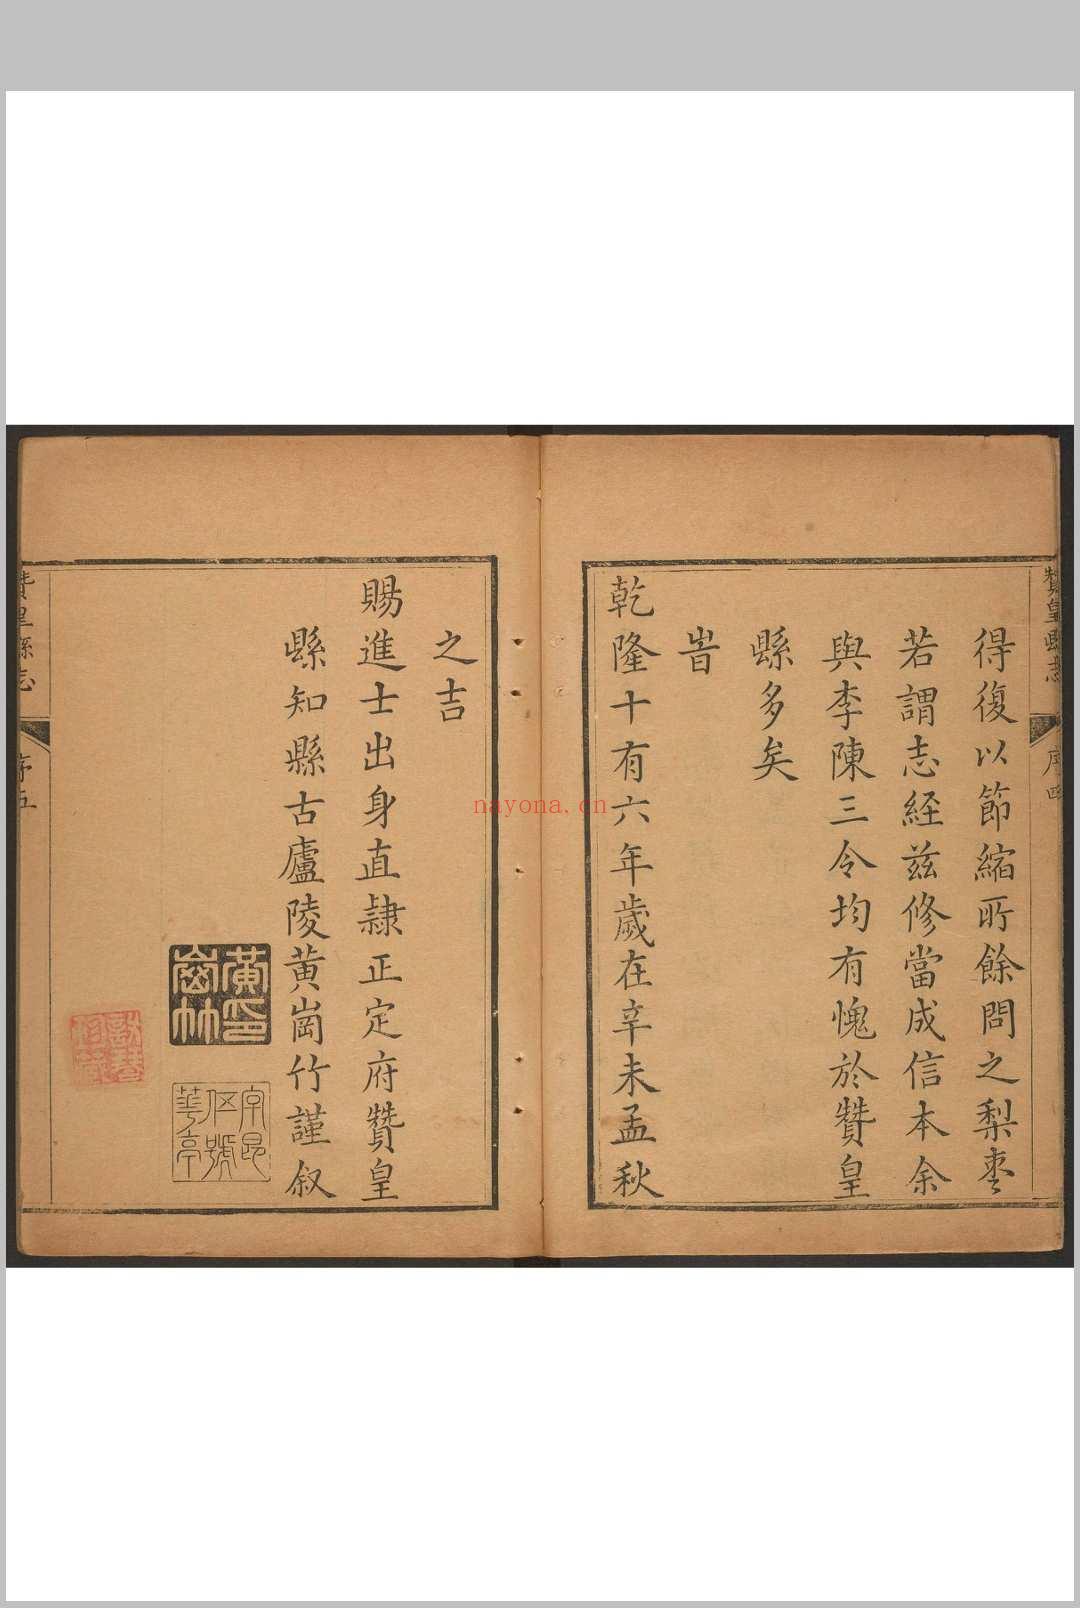 贊皇縣志
序四
得復以節縮所餘問之梨棗
若謂志経兹修當成信本余
與李陳三令均有愧於贊皇
縣多矣
旹
乾隆十有六年歲在辛未孟秋
之吉
賜進士出身直隷正定府贊皇
縣知縣古廬陵黄崗竹謹叙
黃崗竹印
字昆伾號華亭
贊皇縣志
序五
nayona.cn